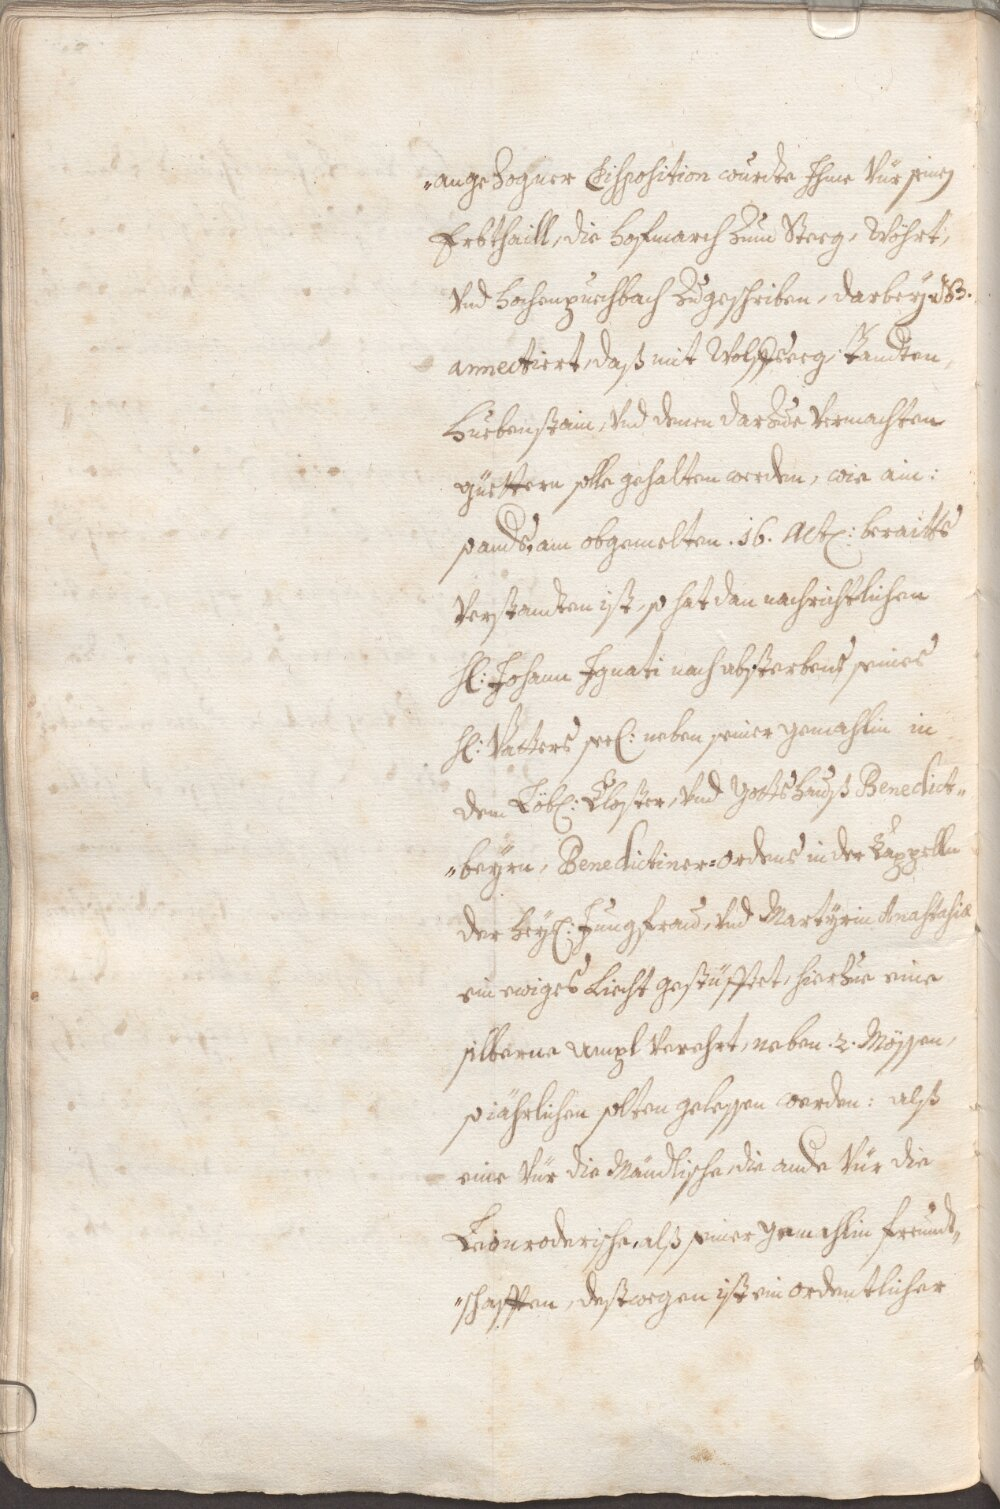 "angezogner Disposition wurdte Ihme Vür seinen
Erbthaill, die Hofmarch zum Steeg, Wöhrt,
Vnd Hochenpuechbach zuegeschriben, darbey aber
annectiert, daß mit Wolfseeg, Tandtern,
Huebenstain, Vnd denen darzue Vermachten
güettern solle gehalten werden, wie ain:
sandts, am obgemelten .16. Act: beraitts
Verstandten ist, so hat dan nachrichtlichen
H: Johann Ignati nach absterbens seines
H: Vatters seel: neben seiner gemahlin in
dem Löbl: Closter, Vnd Gottshauß Benedict=
=beyrn, Benedictiner=ordens in der Cappelln
der Heyl: Jungfrau, Vnd Martyrin Anastasiæ
ein ewiges Liecht gestüfftet, hierzue eine
silberne Ampl Verehrt, neben .2. Mössen,
so iährlichen solten gelessen werden: alß
eine Vür die Mändlische, die ande Vür die
Leonroderische, alß seiner gemahlin freundt=
=schafften, destwegen ist ein ordentlicher